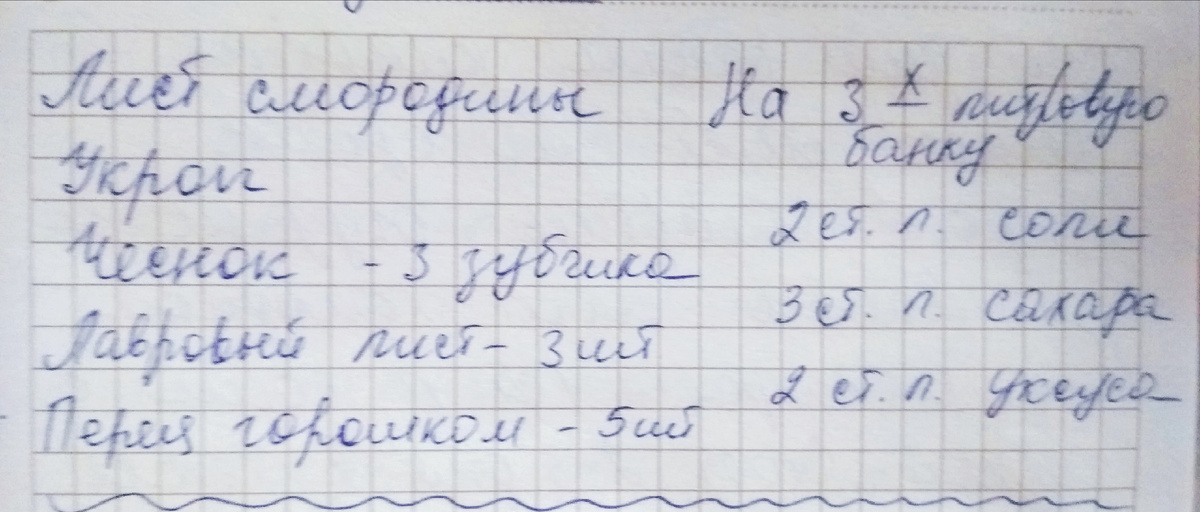 Лист смородины
Укроп
Чеснок - 3 зубчика
Лавровый лист - 3 шт
Перец горошком - 5 шт
На 3х литровую
банку
2 ст. л. соли
3 ст. л. сахара
2 ст. л. уксуса